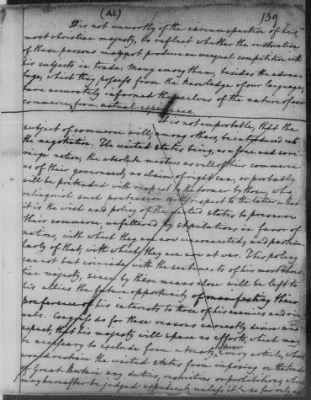 (A2) 139
It is not unworthy of the circumspection of his
most christian majesty, to reflect whether the restoration
of these persons may not produce an unequal competition with
his subjects in trade. Many among them, besides the advan-
tage, which they possess from the knowledge of our language,
have accurately informed themselves of the nature of our
commerce from actual experience.
It is not improbable, that the
subject of commerce will, among others, be introduced into
the negotiation. The united states, being, as a free and sove-
reign nation, the absolute masters as well of their commerce
as of their government, no claim of right can, or probably
will be pretended with respect to the former by those, who
relinquish such pretension with respect to the latter. And
it is the wish and policy of the united states to preserve
their commerce unfettered by stipulations in favor of
nations, with which they are now unconnected, and particu-
larly of that, with which they are now at war. This policy
cannot but coincide with the sentiments of his most chris-
tian majesty, since by these means alone will be left to
his allies the future opportunity of manifesting their
preference of his interests to those of his enemies and riv-
als. Congress do for these reasons earnestly desire and
expect, that his majesty will spare no efforts, which may
be necessary to exclude from a treaty every article, which
would restrain the united states from imposing on the trade
of Great Britain any duties, restrictions or prohibitions, which
may hereafter be judged expedient, unless it be so